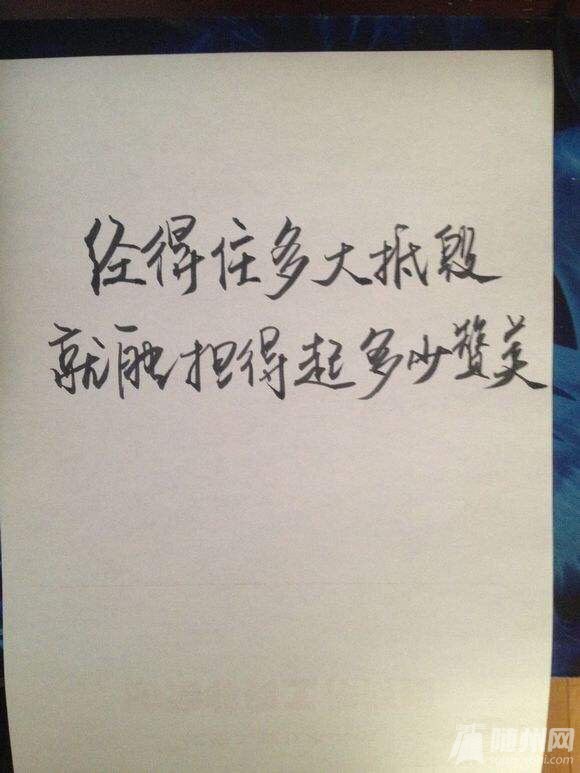 经得住多大抵毁
就能担得起多少赞美
随州网